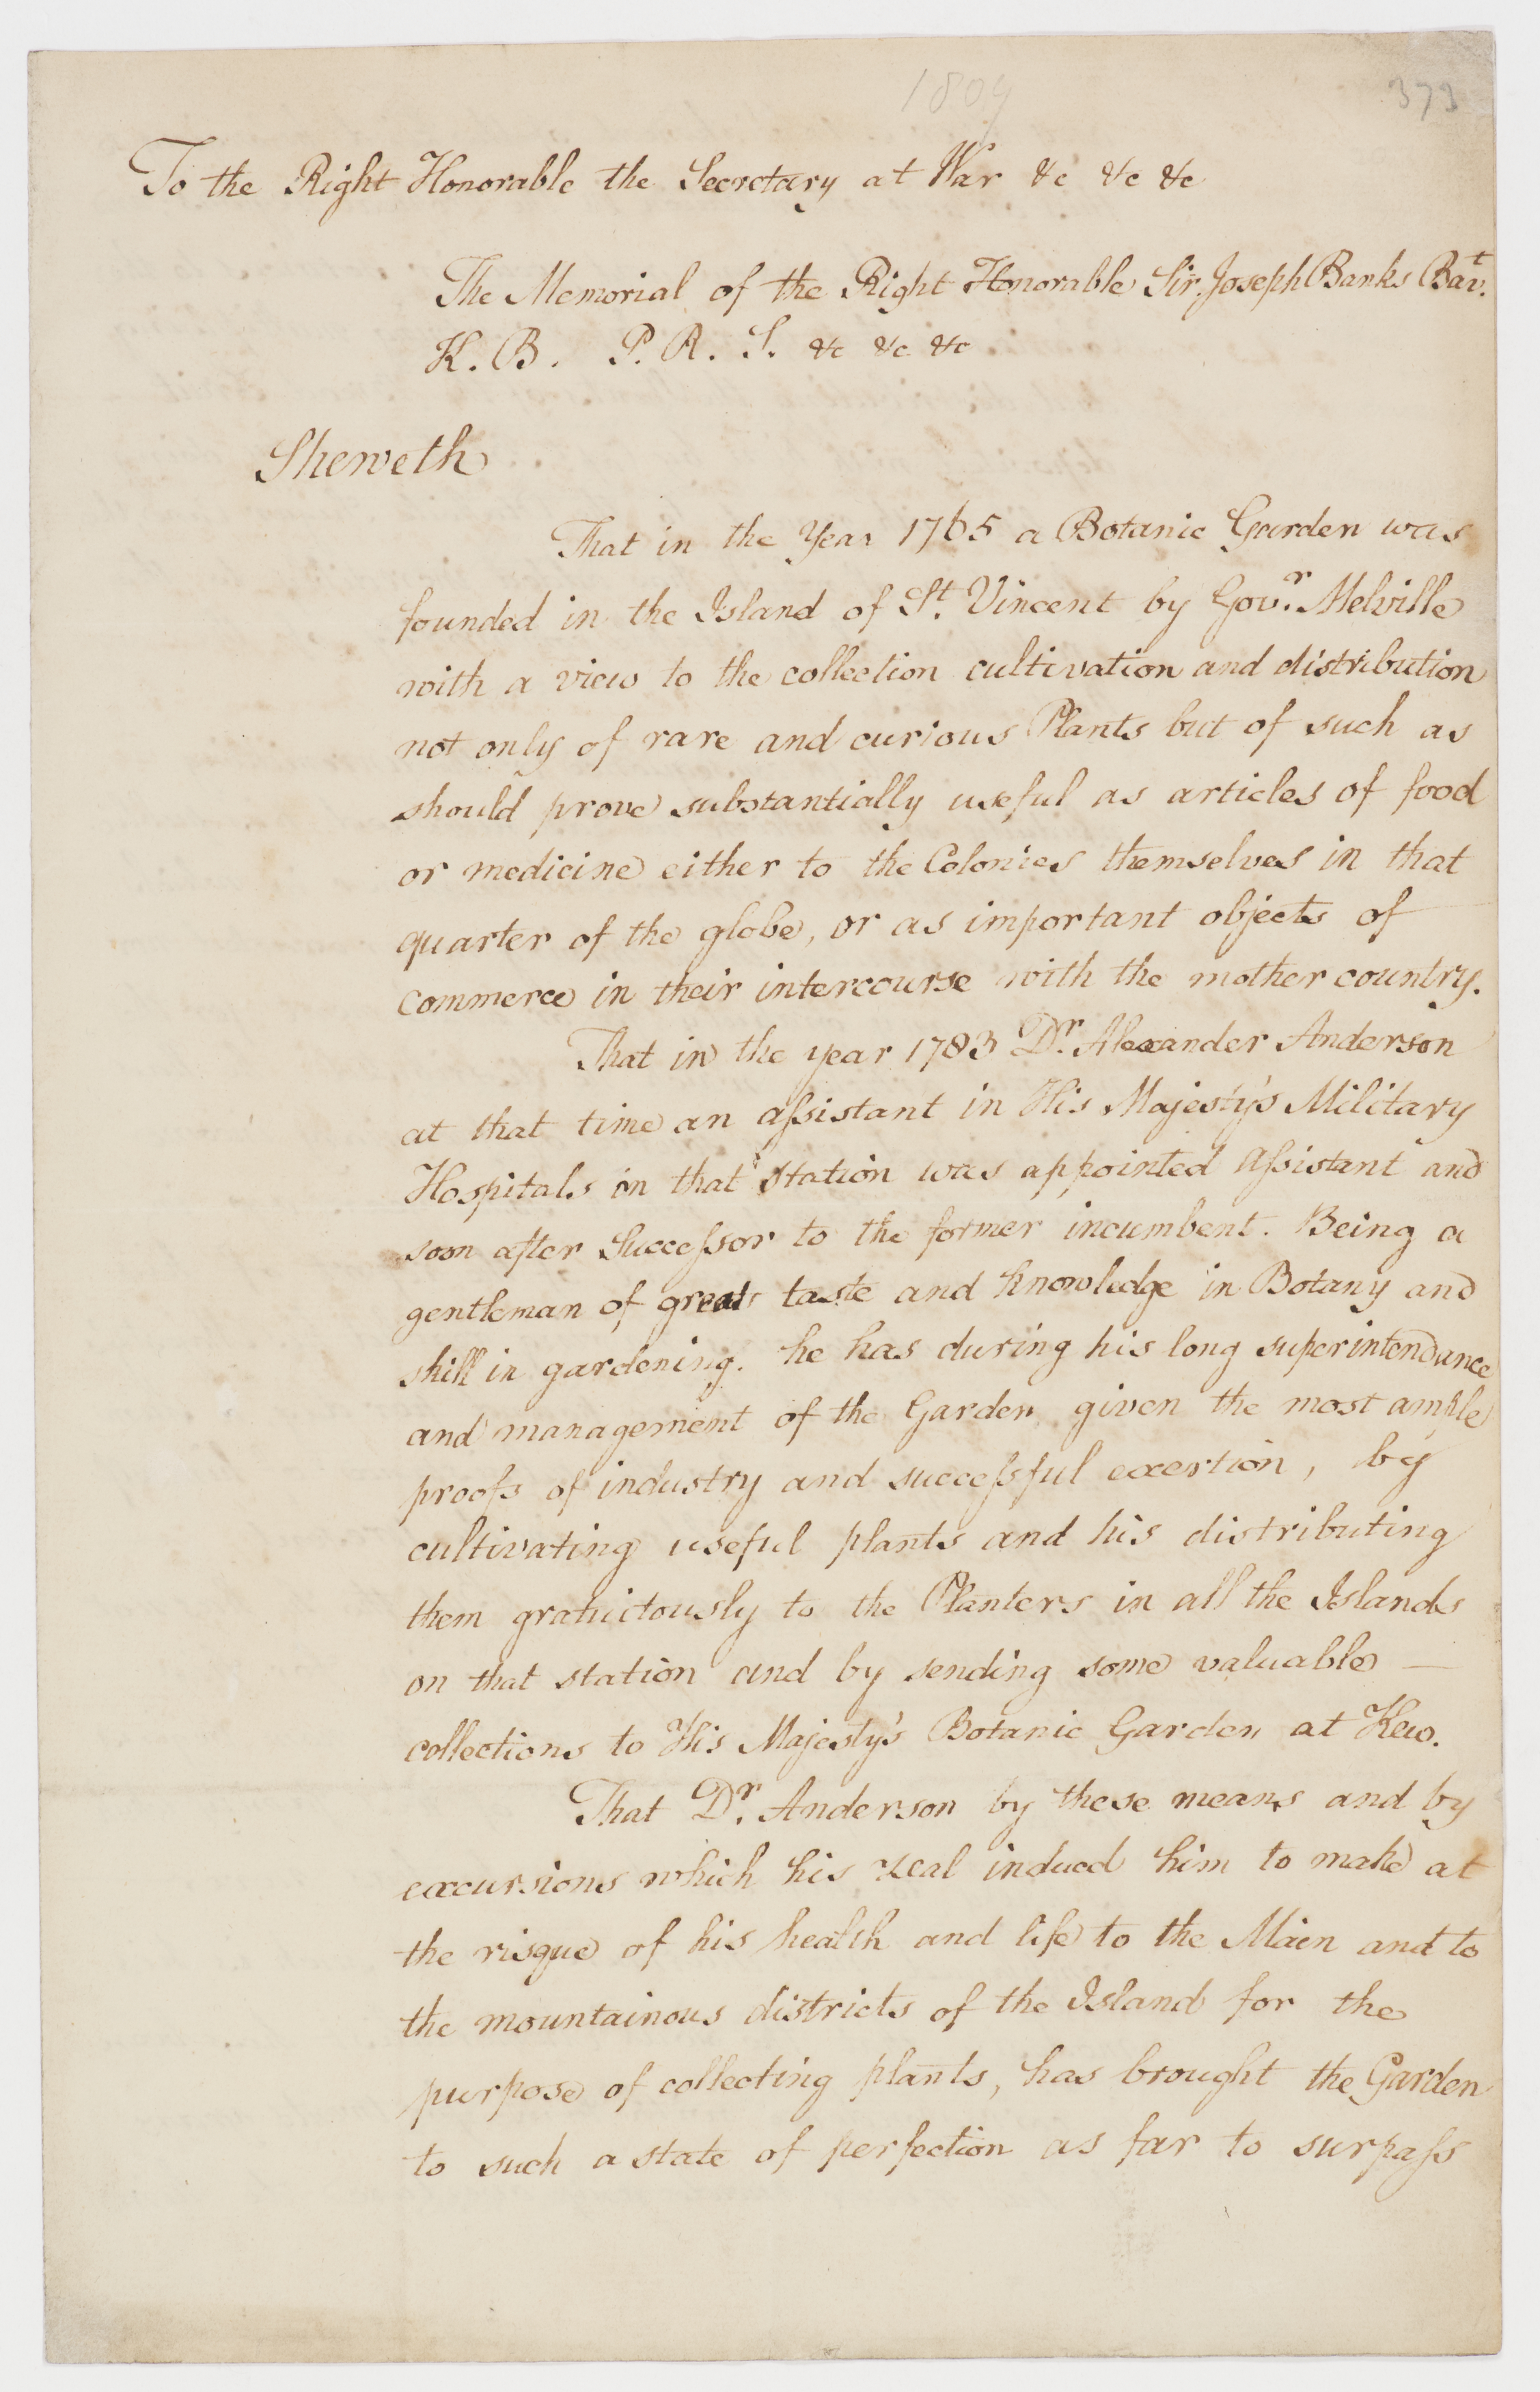 1809
373
To the Right Honorable the Secretary at War &c &c &c
The Memorial of the Right Honorable Sir Joseph Banks Bart.
K. B. P. R. S. &c &c &c
Sheweth
That in the Year 1765 a Botanic Garden was
founded in the Island of St. Vincent by Govr. Melville
with a view to the collection cultivation and distribution
not only of rare and curious Plants but of such as
should prove substantially useful as articles of food
or medicine either to the Colonies themselves in that
quarter of the globe, or as important objects of
commerce in their intercourse with the mother country.
That in the year 1783 Dr. Alexander Anderson
at that time an aſsistant in His Majesty's Military
Hospitals on that Station was appointed Aſsistant and
soon after Succeſsor to the former incumbent. Being a
gentleman of great taste and knowledge in Botany and
skill in gardening. he has during his long superintendance
and management of the Garden given the most ample
proofs of industry and succeſsful exertion, by
cultivating useful plants and his distributing
them gratuitously to the Planters in all the Islands
on that station and by sending some valuable —
collections to His Majesty's Botanic Garden at Kew.
That Dr. Anderson by these means and by
excursions which his zeal induced him to make at
the risque of his health and life to the Main and to
the mountainous districts of the Island for the
purpose of collecting plants, has brought the Garden
to such a state of perfection as far to surpaſs